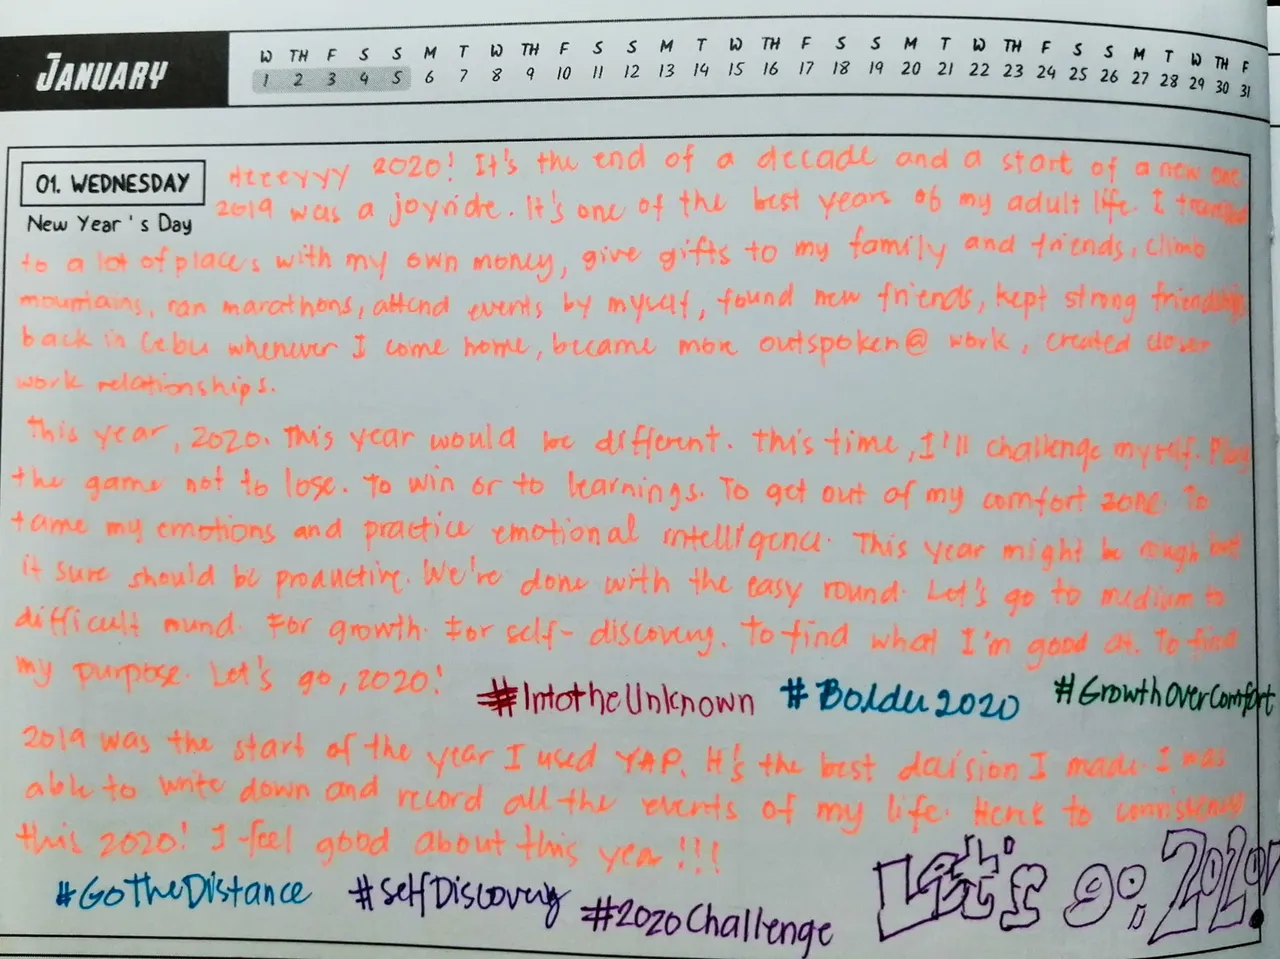 JANUARY
W TH F S S M T W TH F S S M T W TH F S S M T W TH F S S M T W TH F
1 2 3 4 5 6 7 8 9 10 11 12 13 14 15 16 17 18 19 20 21 22 23 24 25 26 27 28 29 30 31
01. WEDNESDAY
New Year's Day
Heeeyyy 2020! It's the end of a decade and a start of a new one.
2019 was a joyride. It's one of the best years of my adult life. I travelled
to a lot of places with my own money, give gifts to my family and friends, climb
mountains, ran marathons, attend events by myself, found new friends, kept strong friendships
back in Cebu whenever I come home, became more outspoken @ work, created closer
work relationships.
This year, 2020. This year would be different. This time, I'll challenge myself. Play
the game not to lose. To win or to learnings. To get out of my comfort zone. To
tame my emotions and practice emotional intelligence. This year might be rough but
it sure should be productive. We're done with the easy round. Let's go to medium to
difficult round. For growth. For self-discovery. To find what I'm good at. To find
my purpose. Let's go, 2020!
#IntotheUnknown #Bolder2020 #GrowthOverComfort
2019 was the start of the year I used YAP. It's the best decision I made. I was
able to write down and record all the events of my life. Here's to consistency
this 2020! I feel good about this year!!!
#GoTheDistance #SelfDiscovery #2020Challenge
Let's go, 2020!